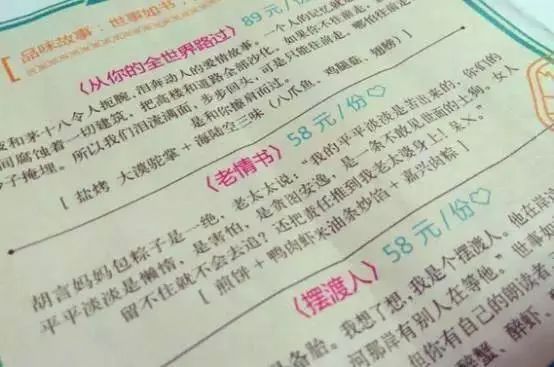 品味故事:世事如书,
〈从你的全世界路过〉89元/份
一个人的记忆就
和茅十八令人扼腕,泪奔动人的爱情故事。
间腐蚀着一切建筑,把高楼和道路全部沙化。如果你不往前走,
子掩埋。所以我们泪流满面,步步回头,可是只能往前走。哪怕往前走,
是和你擦肩而过。
[盐烤 大漠驼掌+海陆空三味(八爪鱼、鸡脑筋、翅膀)]
〈老情书〉58元/份♡
胡言妈妈包粽子是一绝,老太太说:“我的平平淡淡是苦出来的,你们的
平平淡淡是懒惰,是害怕,是贪图安逸,是一条不敢见世面的土狗。女人
留不住就不会去追?还把责任推到我老太婆身上!呆×。”
[煎饼+鸭肉虾米油条炒馅+嘉兴肉粽]
〈摆渡人〉58元/份♡
备胎。我想了想,我是个摆渡人。他在
河那岸有别人在等他。”世事如
但你有自己的朗读者
醉蟹、醉虾、